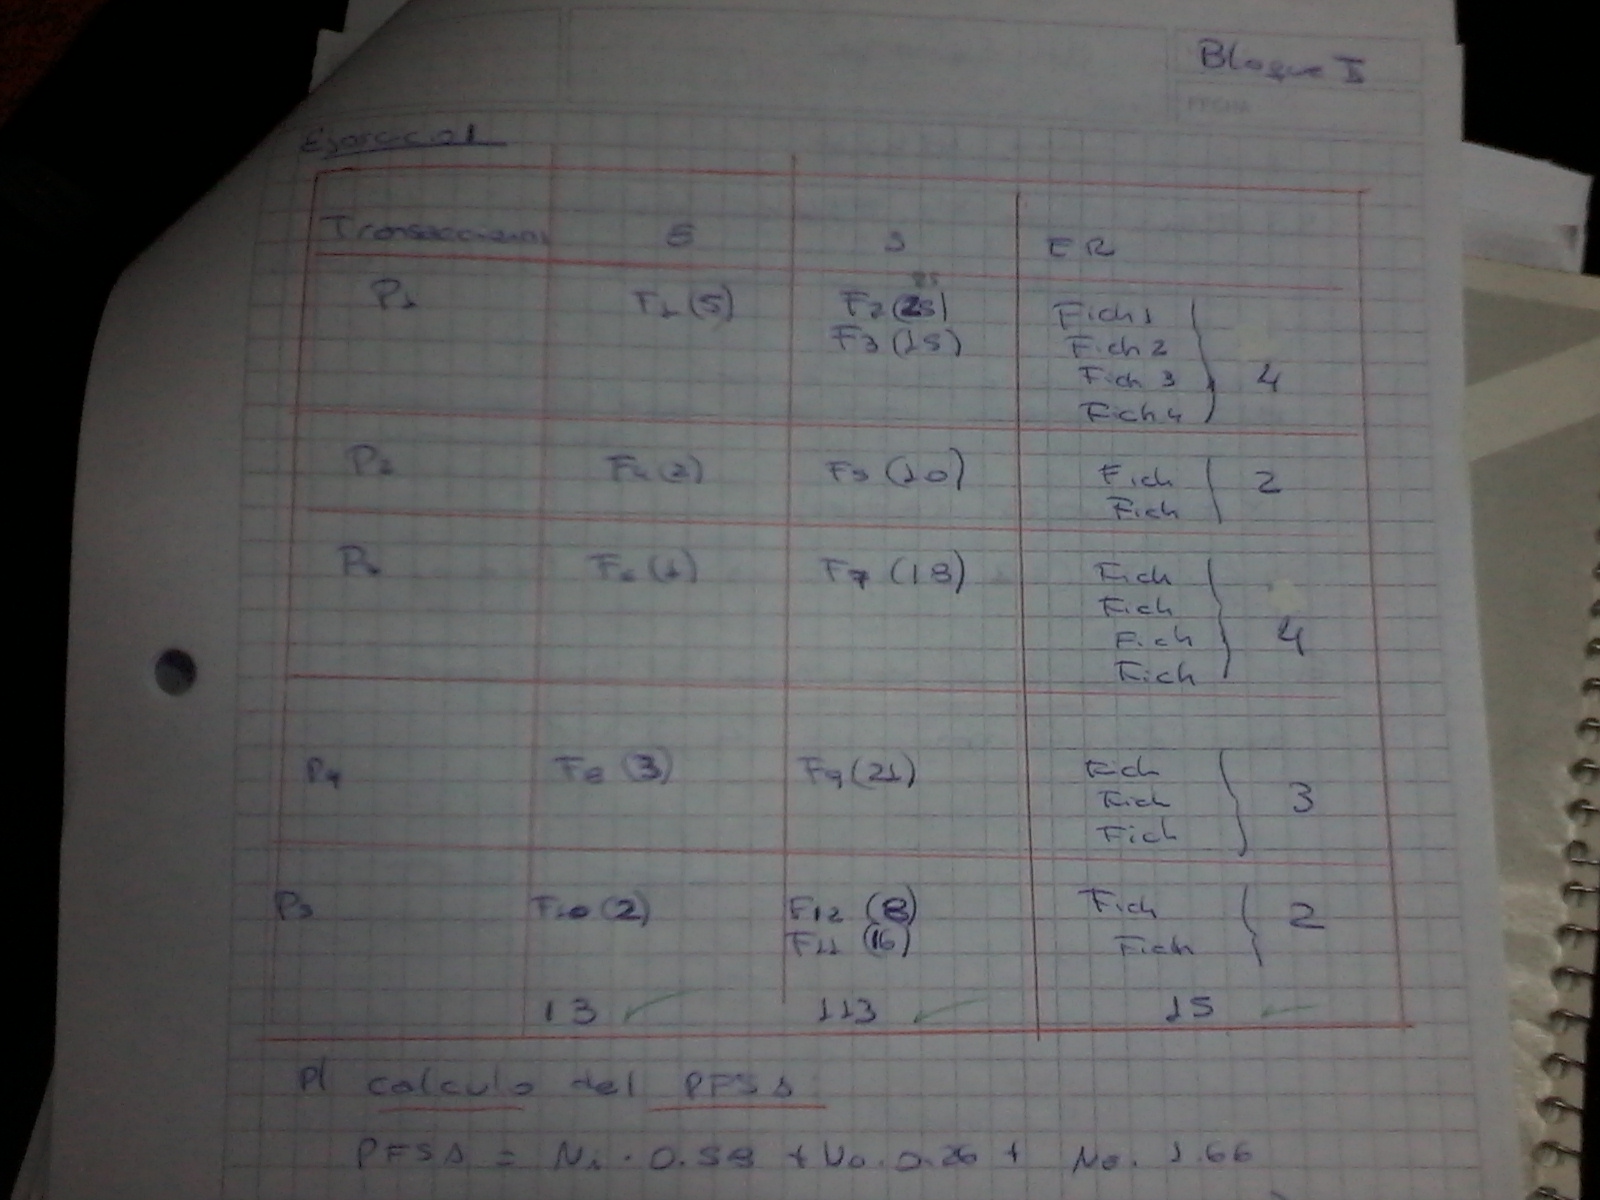 Bloque II
FECHA
Ejercicio 1
Transacciones E S ER
P1 F1 (5) F2 (25) Fich 1
25
F3 (15) Fich 2
Fich 3 4
Fich 4
P2 F4 (2) F5 (10) Fich 2
Fich
P3 F6 (1) F7 (18) Fich
Fich
Fich 4
Fich
P4 F8 (3) F9 (21) Fich
Fich 3
Fich
P5 F10 (2) F12 (8) Fich 2
F11 (16) Fich
13 113 15
P/ calculo del PFSA
PFSA = Ni . 0.58 + No . 0.26 + Ne . 1.66